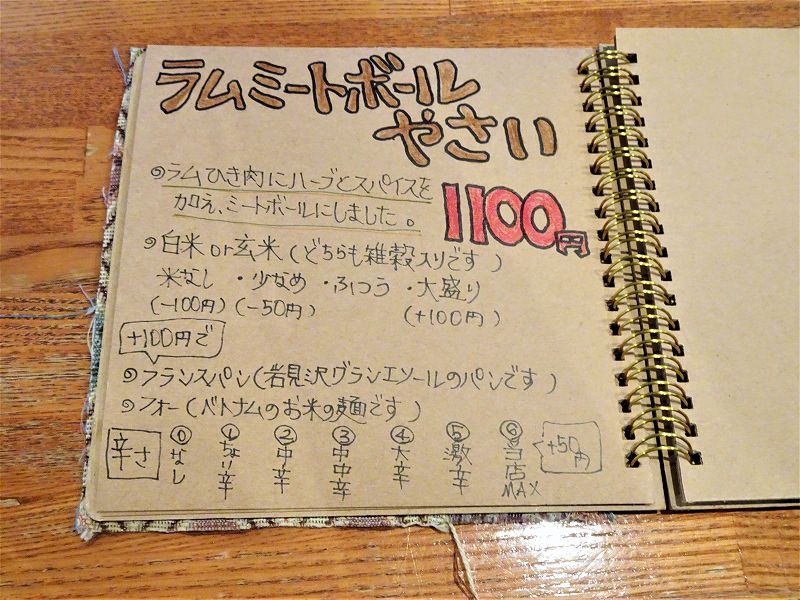 ラムミートボール
やさい
1100円
ラムひき肉にハーブとスパイスを
加え、ミートボールにしました。
白米or玄米(どちらも雑穀入りです)
米なし・少なめ・ふつう・大盛り
(-100円)(-50円) (+100円)
+100円で
フランスパン(岩見沢グランエソールのパンです)
フォー(ベトナムのお米の麺です)
辛さ
⓪なし
①ちょい辛
②中辛
③中中辛
④大辛
⑤激辛
⑥当店MAX
+50円